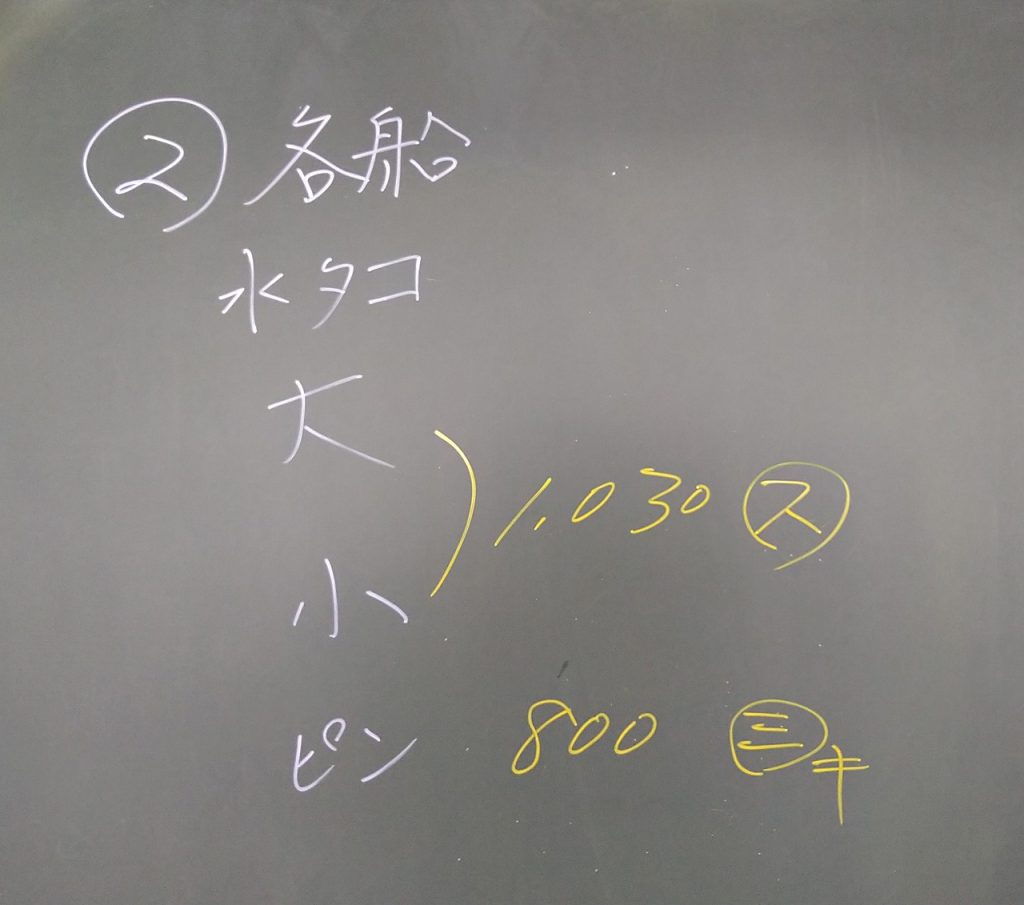 ② 各船
水タコ
大
小
1,030 ㋜
ピン 800 ㊂キ